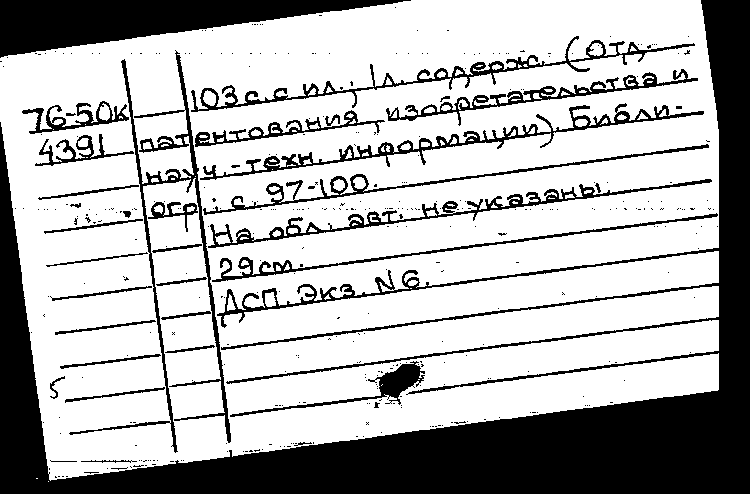 103 с. с ил.; 1 л. содерж. (Отд.
76-50к
4391
патентования, изобретательства и
науч.-техн. информации). Библи-
огр.: с. 97-100.
На обл. авт. не указаны.
29 см.
ДСП. Экз. N 6.
5